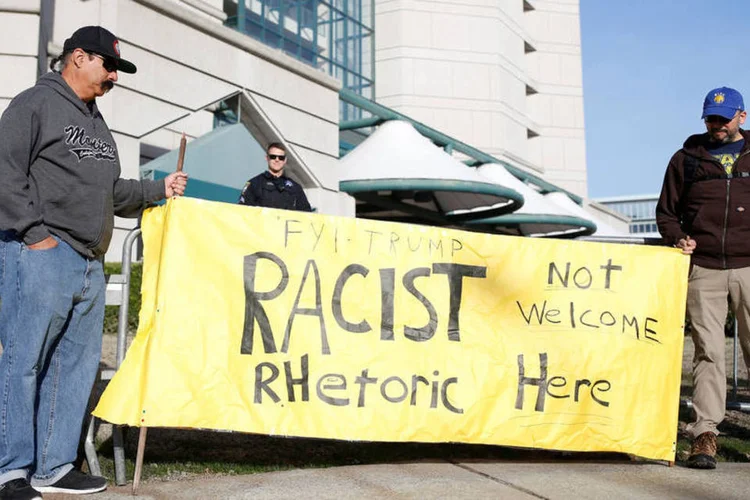 FYI-TRUMP
RACIST
RHetoric
Not
WelcoMe
Here